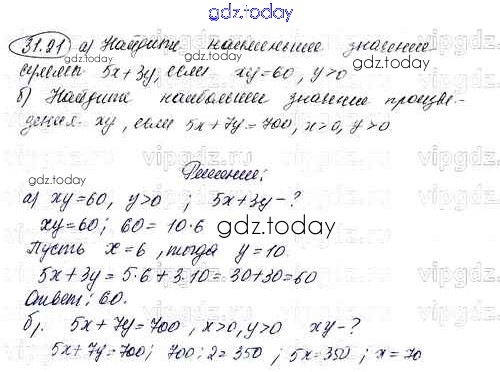 gdz.today
31.21 а) Найдите наименьшее значение
суммы 5x+3y, если xy=60, y>0
gdz.today
б) Найдите наибольшее значение произве-
дения xy, если 5x+7y=700, x>0, y>0
Решение;
gdz.today
а) xy=60, y>0 ; 5x+3y-?
xy=60; 60=10·6
gdz.today
Пусть x=6, тогда y=10
5x+3y=5·6+3·10=30+30=60
Ответ: 60.
б). 5x+7y=700, x>0, y>0 xy-?
5x+7y=700; 700:2=350; 5x=350; x=70
gdz.today
vipgdz.ru
vipgdz.ru
vipgdz.ru